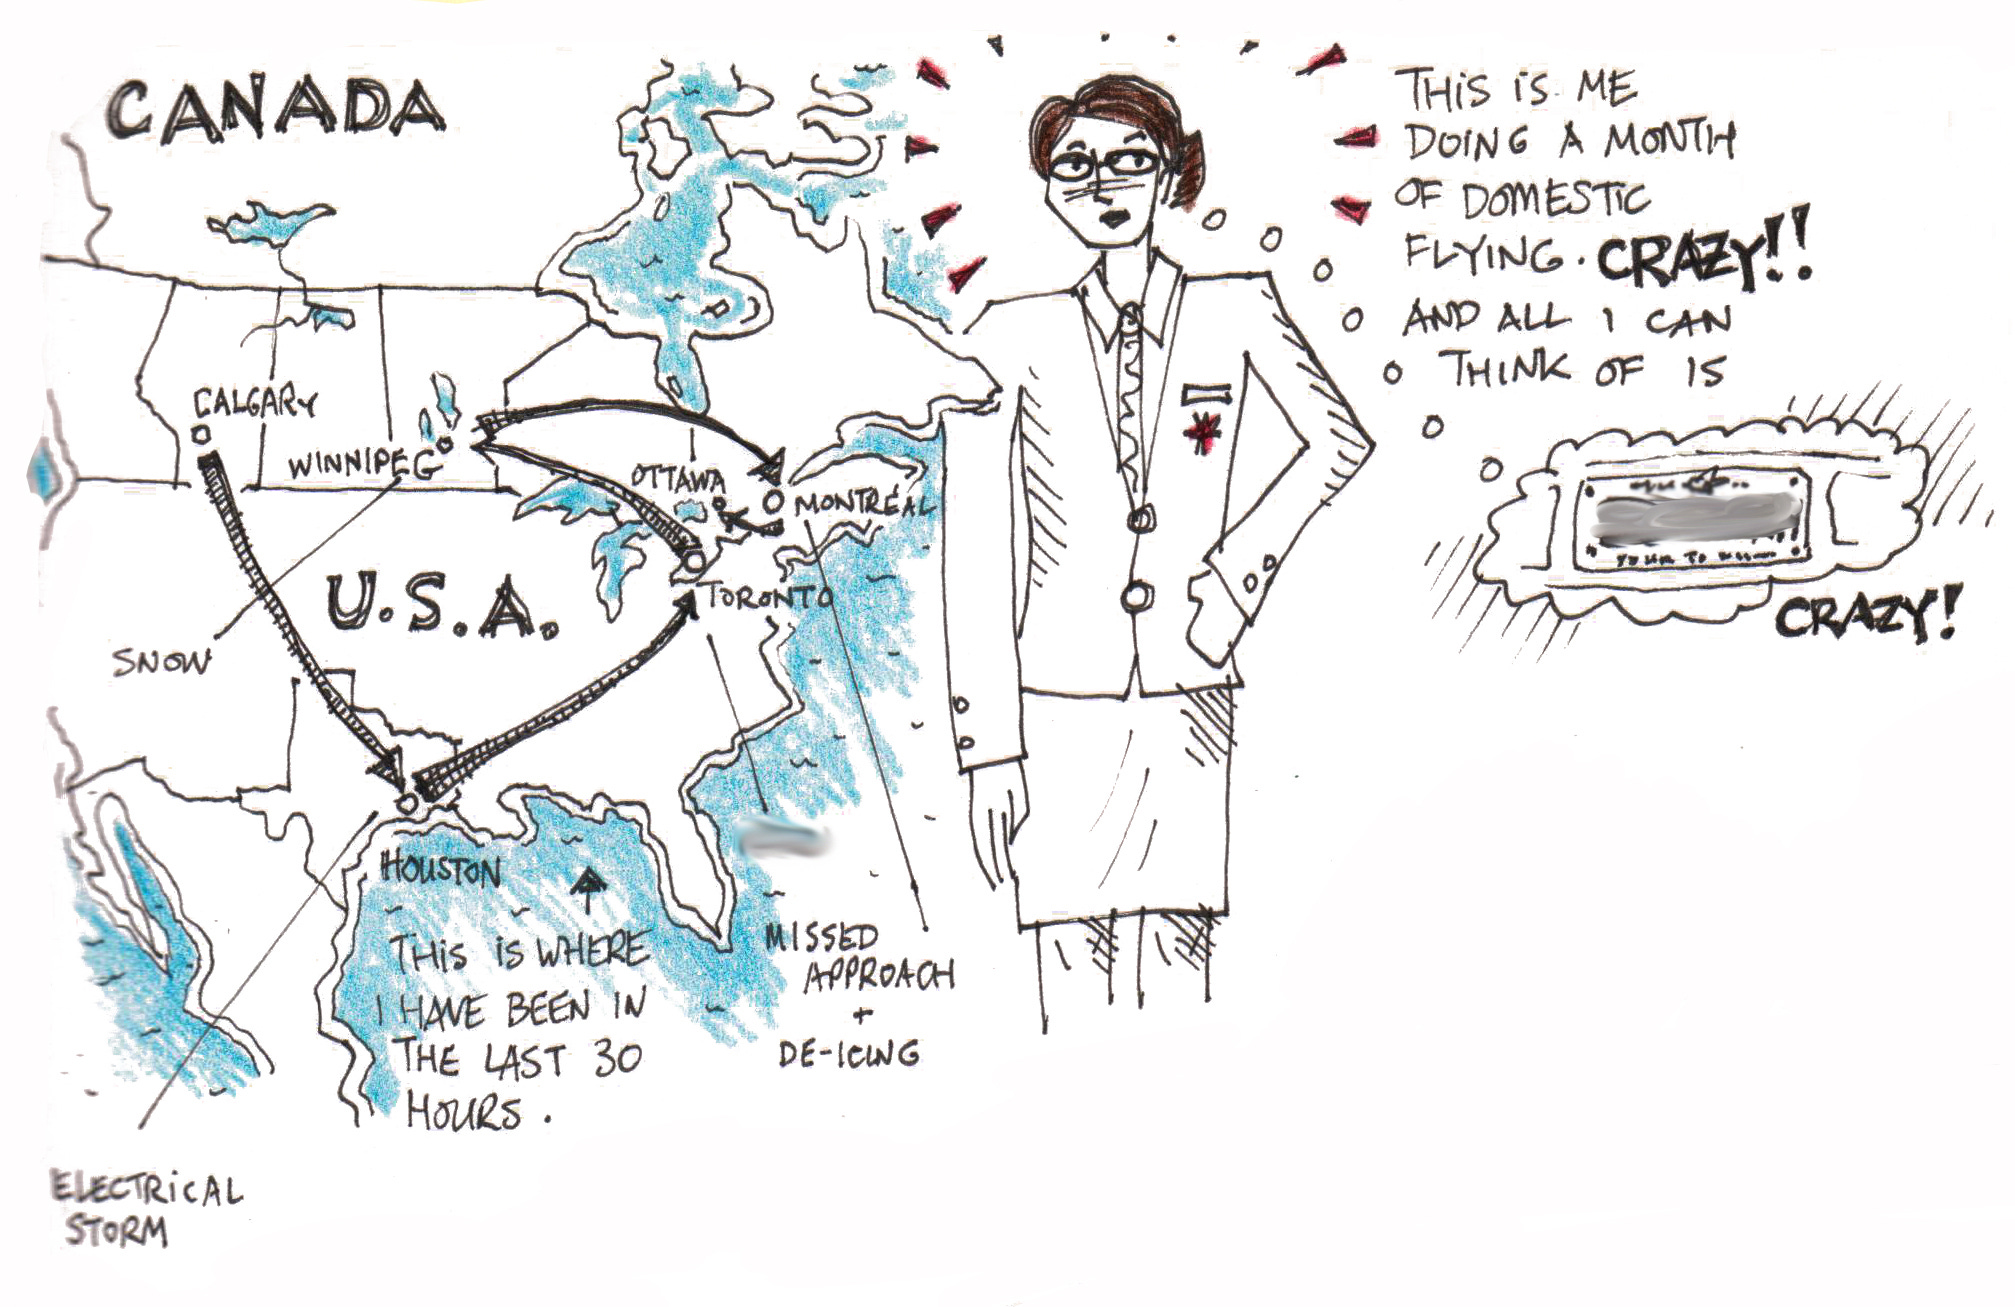 CANADA
THIS IS ME
DOING A MONTH
OF DOMESTIC
FLYING. CRAZY!!
AND ALL I CAN
THINK OF IS
CRAZY!
CALGARY
WINNIPEG
OTTAWA
MONTRÉAL
U.S.A.
TORONTO
SNOW
HOUSTON
THIS IS WHERE
I HAVE BEEN IN
THE LAST 30
HOURS.
MISSED
APPROACH
+
DE-ICING
ELECTRICAL
STORM